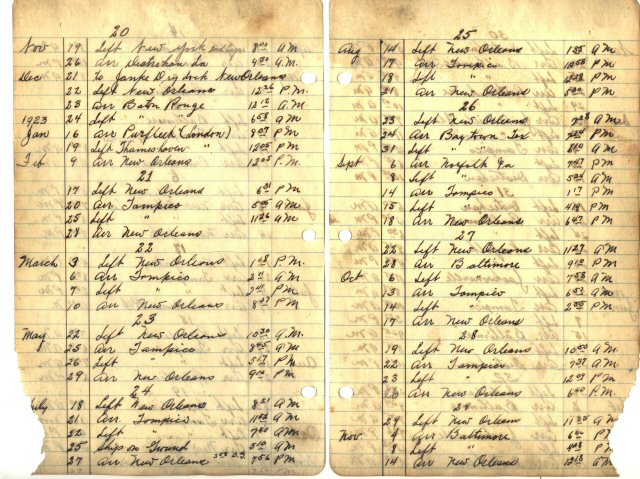 20
Nov 19 Left New York 8 00 A M
26 Arr Destrehan La 9 30 A.M.
Dec 21 To Jahnke Dry Dock New Orleans
22 Left New Orleans 12 26 P.M
23 Arr Baton Rouge 12 12 A.M.
1923 24 Left " " 6 53 A M
Jan 16 Arr Purfleet (London) 8 07 P M
19 Left Thameshaven " 12 05 P M
Feb 9 Arr New Orleans 12 05 P.M.
21
17 Left New Orleans 6 31 P M
20 Arr Tampico 5 05 A M
25 Left " 11 26 A M
28 Arr New Orleans
22
March 3 Left New Orleans P.M.
6 Arr Tampico A M
7 Left " P M
10 Arr New Orleans 8 27 P M
23
May 22 Left New Orleans 10 30 A M.
25 Arr Tampico 8 45 A M
26 Left " 5 17 P M
29 Arr New Orleans 9 10 P M
24
July 18 Left New Orleans 8 51 A M
21 Arr Tampico A M
22 Left " 7 40 A M
25 Ships on Ground 5 10 A M
27 Arr New Orleans 7 56 P M
25
Aug 14 Left New Orleans 1 35 A M
17 Arr Tampico P M
18 Left " P M
21 Arr New Orleans 5 00 P M
26
23 Left New Orleans A M
24 Arr Baytown Tex P M
31 Left " 8 10 A M
Sept 6 Arr Norfolk Va 7 47 P M
8 Left " A M
14 Arr Tampico 1 17 P M
15 Left " P M
18 Arr New Orleans 6 47 P M
27
22 Left New Orleans 11 27 A M
28 Arr Baltimore 9 10 P M
Oct 6 Left " 7 58 A M
13 Arr Tampico 6 51 A M
14 Left " 2 55 P M
17 Arr New Orleans
28
19 Left New Orleans 10 50 A M.
22 Arr Tampico 9 37 A M
23 Left " 12 09 P M
26 Arr New Orleans 6 40 P M.
29
29 Left New Orleans 11 35 A M
Nov. 4 Arr Baltimore P M
8 Left " P M
14 Arr New Orleans 12 18 A M